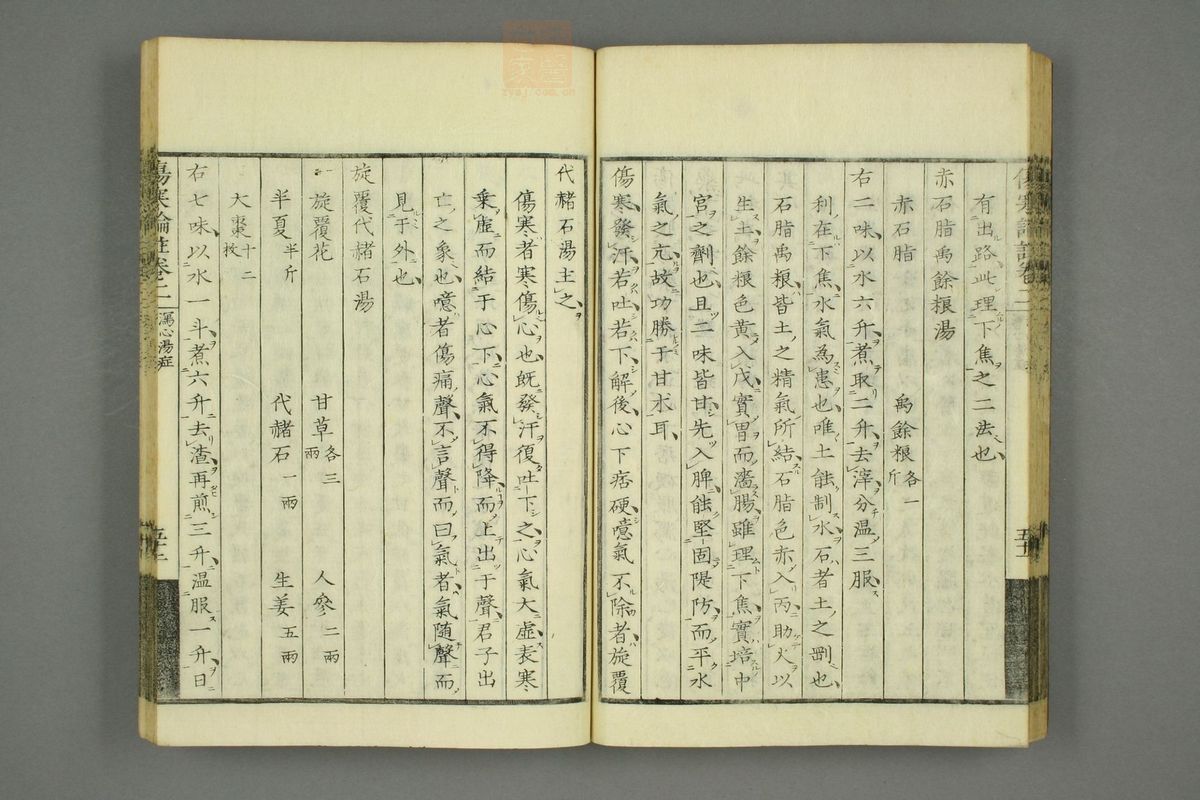 有出路此理下焦之二法也
赤石脂禹餘粮湯
赤石脂 禹餘粮各一斤
右二味以水六升煮取二升去滓分温三服
利在下焦水氣為患也唯土能制水石者土之剛也
石脂禹粮皆土之精氣所結石脂色赤入丙助火以
生土餘粮色黄入戊實胃而濇腸雖理下焦實培中
宮之劑也且二味皆甘先入脾能堅固隄防而平水
氣之亢故功勝于甘朮耳
傷寒發汗若吐若下解後心下痞硬噫氣不除者旋覆
代赭石湯主之
傷寒者寒傷心也既發汗復吐下之心氣大虛表寒
乗虛而結于心下心氣不得降而上出于聲君子出
亡之象也噫者傷痛聲不言聲而曰氣者氣隨聲而
見于外也
旋覆代赭石湯
旋覆花 甘草各三兩 人參二兩
半夏半斤 代赭石一兩 生姜五兩
大棗十二枚
右七味以水一斗煮六升去渣再煎三升温服一升日
傷寒論註卷之二 瀉心湯症
zysj.com.cn